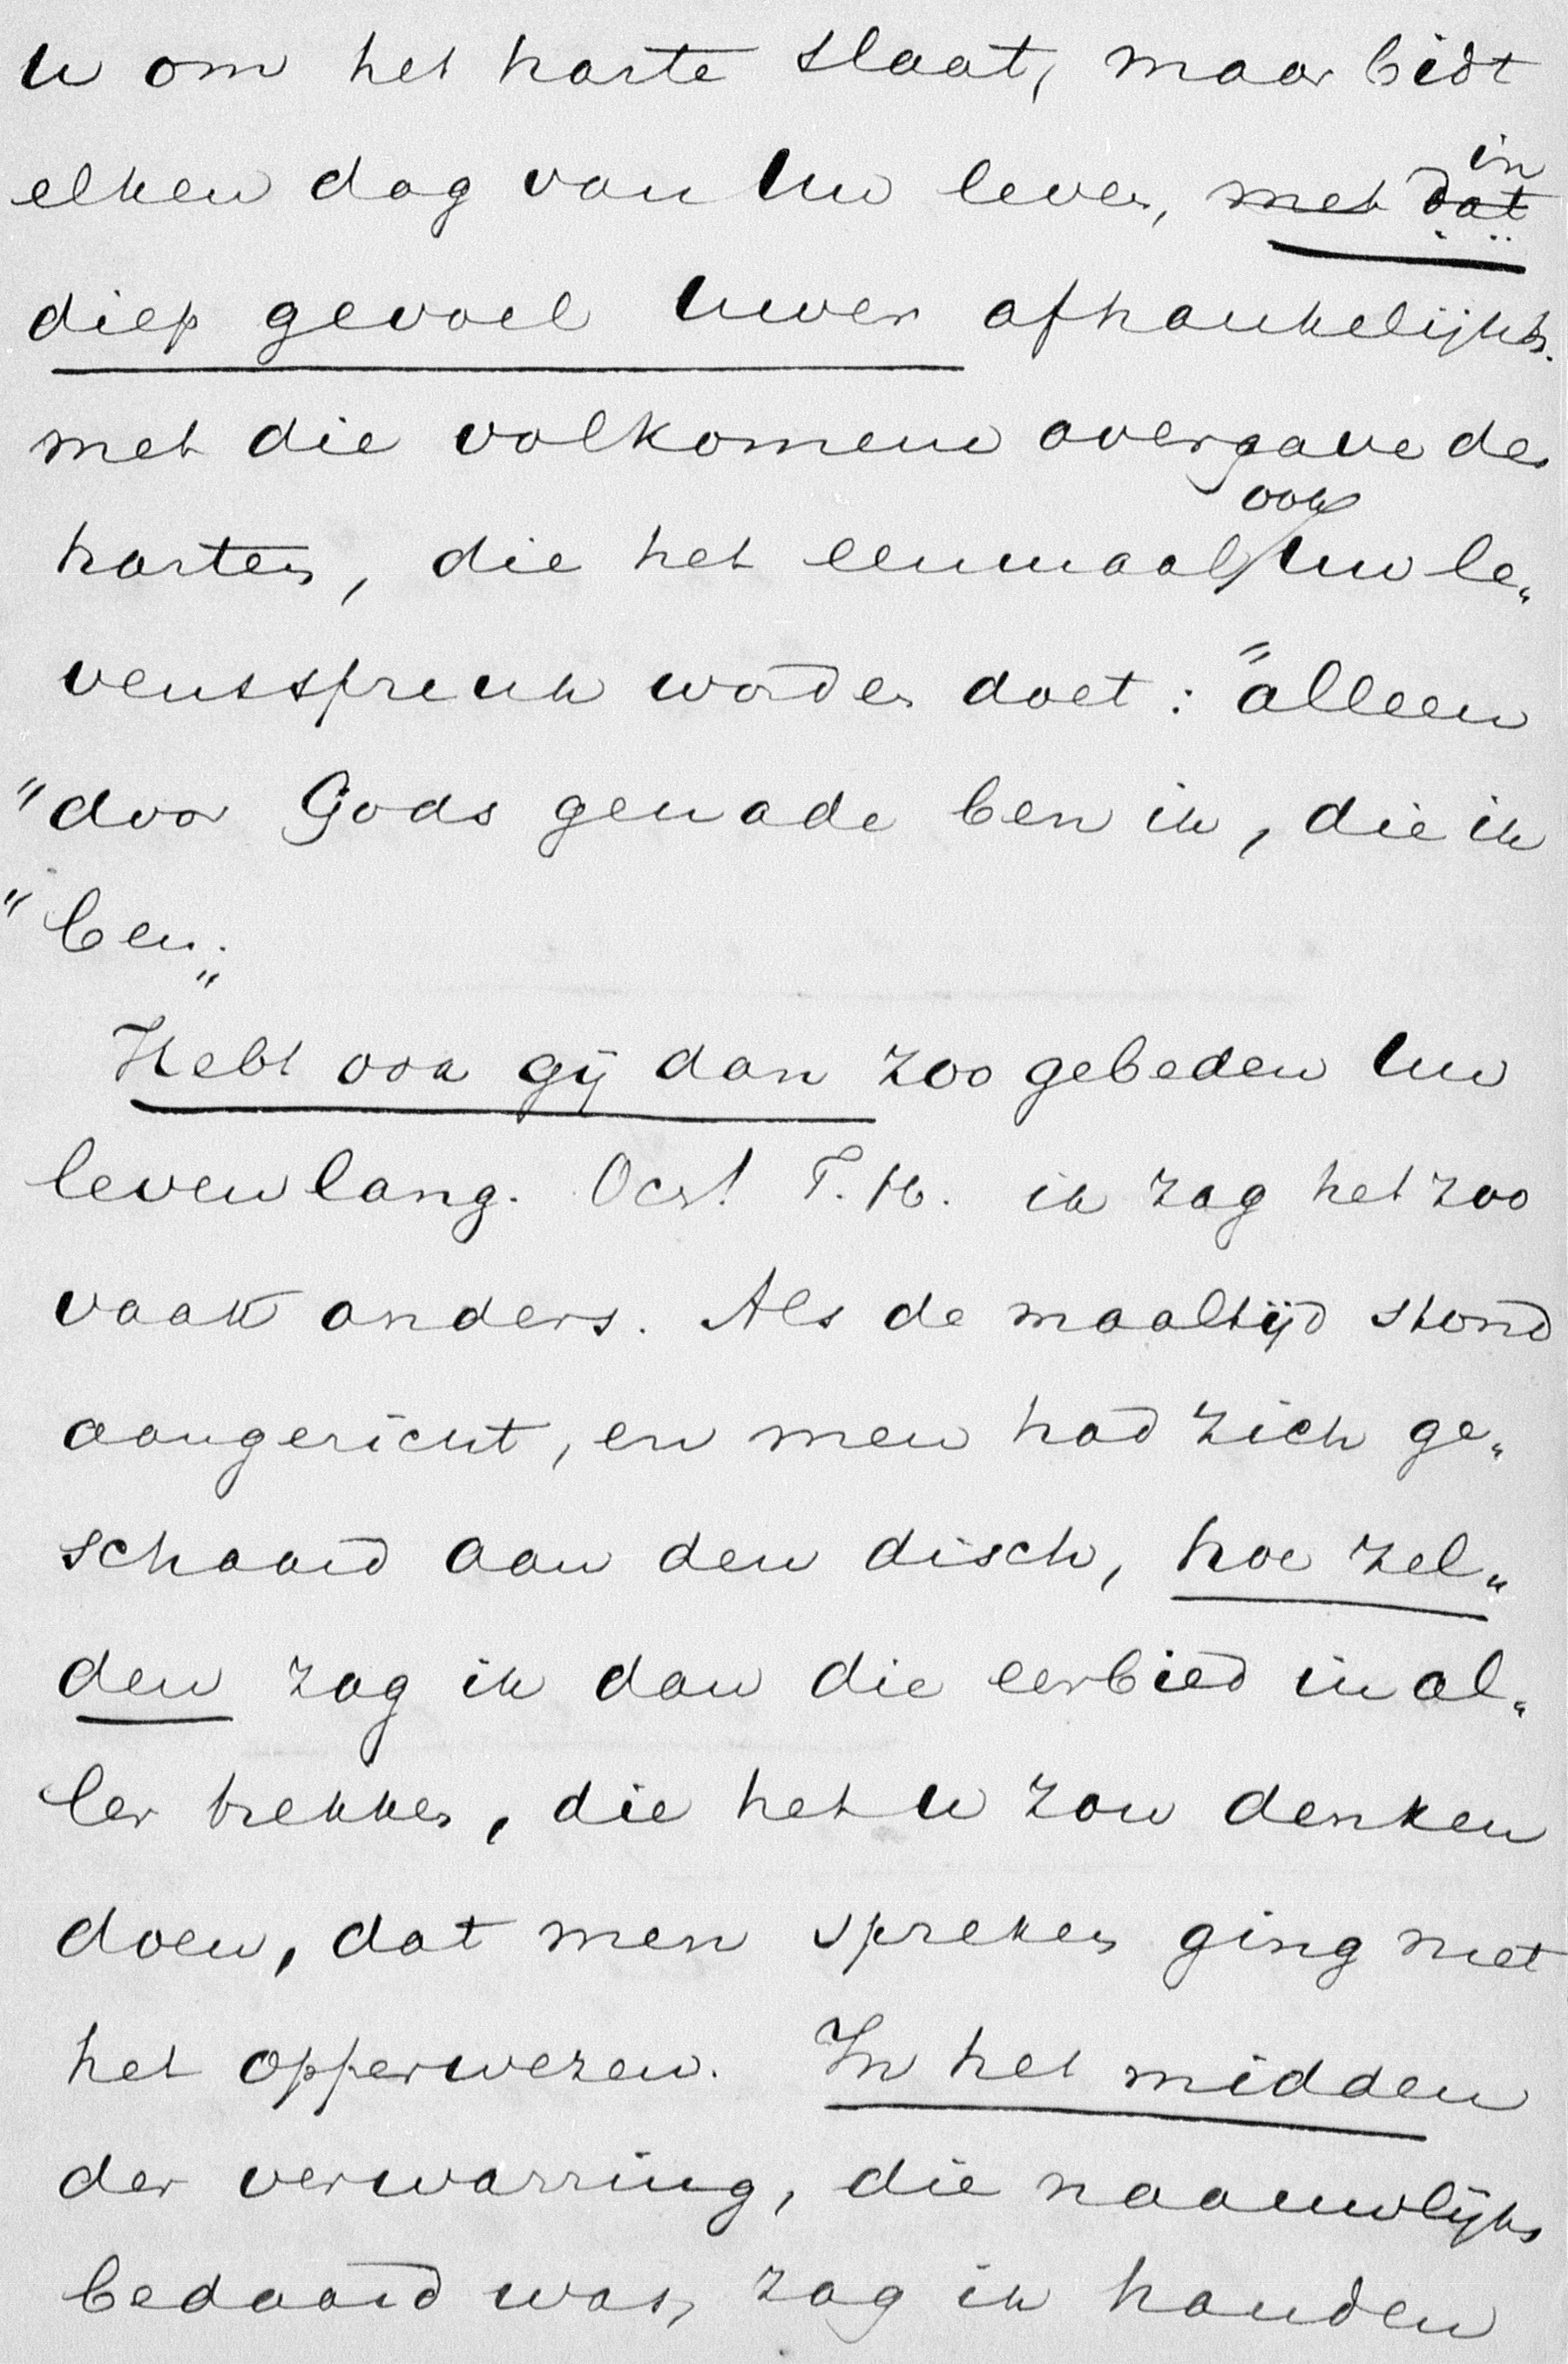 U om het harte slaat, maar bidt
elken dag van Uw leven, met in dat
diep gevoel Uwer afhankelijkh.
met die volkomene overgave des
harten, die het eenmaal ook Uw le„
vensspreuk worden doet: "alleen
"door Gods genade ben ik, die ik
"ben."
Hebt ook gij dan zoo gebeden Uw
leven lang. Och! T. H. ik zag het zoo
vaak anders. Als de maaltijd stond
aangericht, en men had zich ge„
schaard aan den disch, hoe zel„
den zag ik dan die eerbied in al„
ler trekken, die het U zou denken
doen, dat men spreken ging met
het opperwezen. In het midden
der verwarring, die naauwlijks
bedaard was, zag ik handen